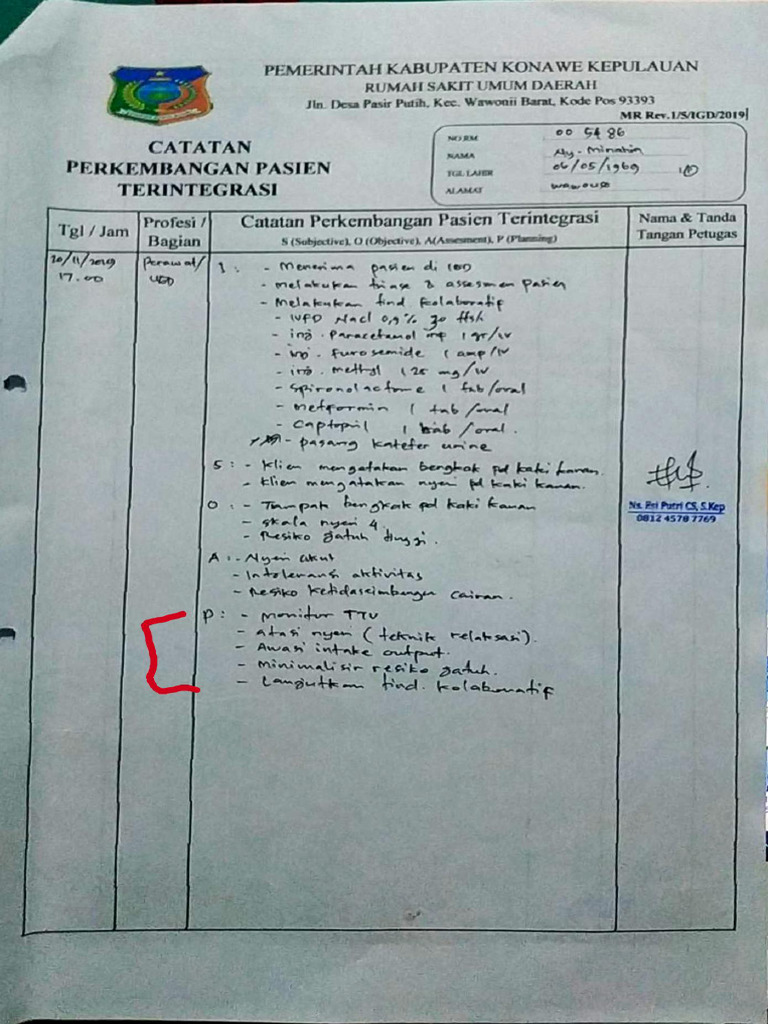 PEMERINTAH KABUPATEN KONAWE KEPULAUAN
RUMAH SAKIT UMUM DAERAH
Jln. Desa Pasir Putih, Kec. Wawonii Barat, Kode Pos 93393
MR Rev.1/S/IGD/2019
CATATAN
PERKEMBANGAN PASIEN
TERINTEGRASI
NO RM 00 54 86
NAMA Ny. Minahia
TGL LAHIR 06/05/1969
ALAMAT wawouso
Tgl / Jam
Profesi / Bagian
Catatan Perkembangan Pasien Terintegrasi
S (Subjective), O (Objective), A(Assesment), P (Planning)
Nama & Tanda Tangan Petugas
20/11/2019
17.00
Perawat/
UGD
I : - Menerima pasien di IGD
- melakukan triase & assesmen pasien
- Melakukan tind kolaboratif
- IVFD Nacl 0,9% 30 tts/i
- inj. Paracetamol inf 1 gr/IV
- inj. Furosemide 1 amp/IV
- inj. methyl 125 mg/IV
- Spironolactone 1 tab/oral
- Metformin 1 tab/oral
- Captopril 1 tab/oral.
- pasang kateter urine
S : - Klien mengatakan bengkak pd kaki kanan.
- Klien mengatakan nyeri pd kaki kanan.
O : - Tampak bengkak pd kaki kanan
- skala nyeri 4
- Resiko jatuh tinggi.
A : - Nyeri akut
- Intoleransi aktivitas
- Resiko ketidakseimbangan cairan.
P : - Monitor TTV
- Atasi nyeri (teknik relaksasi).
- Awasi intake output.
- Minimalisir resiko jatuh.
- Lanjutkan tind. kolaboratif
Ns. Esi Putri CS, S.Kep
0812 4578 7769